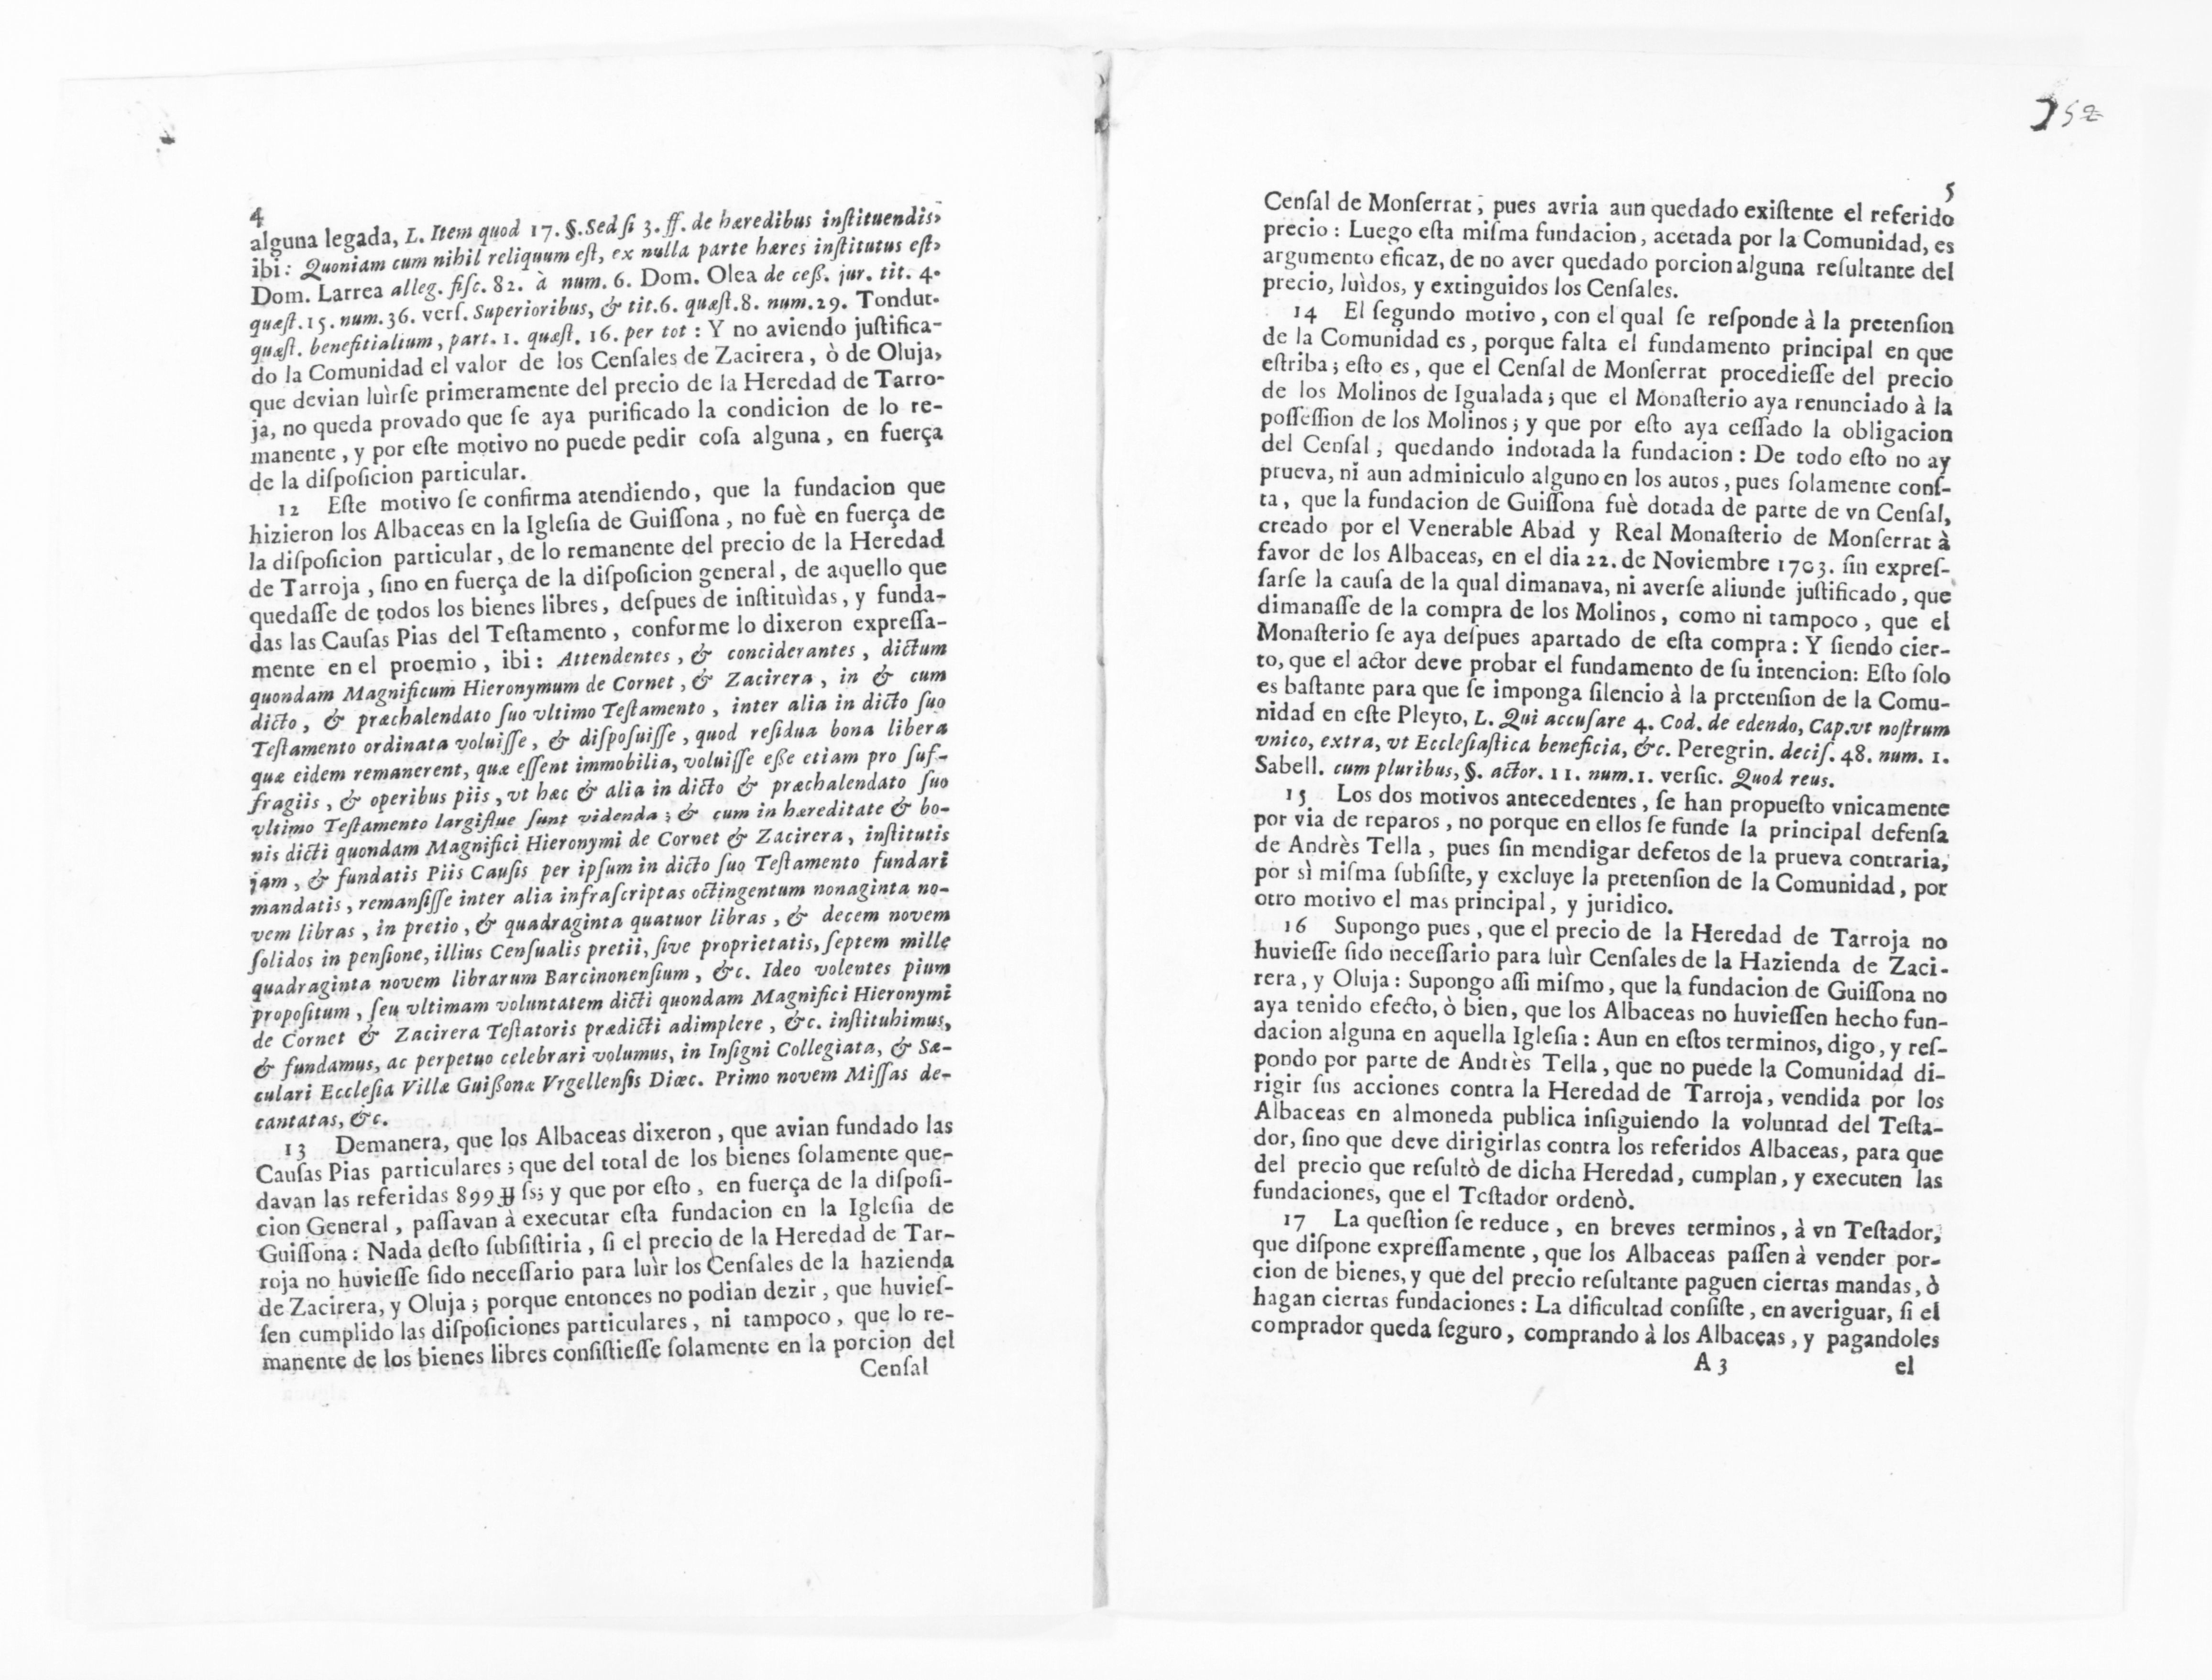 4
alguna legada, L. Item quod 17. §. Sed ſi 3. ff. de hæredibus inſtituendis,
ibi: Quoniam cum nihil reliquum eſt, ex nulla parte hæres inſtitutus eſt,
Dom. Larrea alleg. fiſc. 82. à num. 6. Dom. Olea de ceß. jur. tit. 4.
quæſt. 15. num. 36. verſ. Superioribus, & tit. 6. quæſt. 8. num. 29. Tondut.
quæſt. benefitialium, part. 1. quæſt. 16. per tot: Y no aviendo juſtifica-
do la Comunidad el valor de los Cenſales de Zacirera, ò de Oluja,
que devian luìrſe primeramente del precio de la Heredad de Tarro-
ja, no queda provado que ſe aya purificado la condicion de lo re-
manente, y por eſte motivo no puede pedir coſa alguna, en fuerça
de la diſpoſicion particular.
12 Eſte motivo ſe confirma atendiendo, que la fundacion que
hizieron los Albaceas en la Igleſia de Guiſſona, no fuè en fuerça de
la diſpoſicion particular, de lo remanente del precio de la Heredad
de Tarroja, ſino en fuerça de la diſpoſicion general, de aquello que
quedaſſe de todos los bienes libres, deſpues de inſtituìdas, y funda-
das las Cauſas Pias del Teſtamento, conforme lo dixeron expreſſa-
mente en el proemio, ibi: Attendentes, & conciderantes, dictum
quondam Magnificum Hieronymum de Cornet, & Zacirera, in & cum
dicto, & præchalendato ſuo vltimo Teſtamento, inter alia in dicto ſuo
Teſtamento ordinata voluiſſe, & diſpoſuiſſe, quod reſidua bona libera
quæ eidem remanerent, quæ eſſent immobilia, voluiſſe eße etiam pro ſuf-
fragiis, & operibus piis, vt hæc & alia in dicto & præchalendato ſuo
vltimo Teſtamento largiſlue ſunt videnda; & cum in hæreditate & bo-
nis dicti quondam Magnifici Hieronymi de Cornet & Zacirera, inſtitutis
jam, & fundatis Piis Cauſis per ipſum in dicto ſuo Teſtamento fundari
mandatis, remanſiſſe inter alia infraſcriptas octingentum nonaginta no-
vem libras, in pretio, & quadraginta quatuor libras, & decem novem
ſolidos in penſione, illius Cenſualis pretii, ſive proprietatis, ſeptem mille
quadraginta novem librarum Barcinonenſium, &c. Ideo volentes pium
propoſitum, ſeu vltimam voluntatem dicti quondam Magnifici Hieronymi
de Cornet & Zacirera Teſtatoris prædicti adimplere, &c. inſtituhimus,
& fundamus, ac perpetuo celebrari volumus, in Inſigni Collegiata, & Sæ-
culari Eccleſia Villæ Guißonæ Vrgellenſis Diœc. Primo novem Miſſas de-
cantatas, &c.
13 Demanera, que los Albaceas dixeron, que avian fundado las
Cauſas Pias particulares; que del total de los bienes ſolamente que-
davan las referidas 899 ₶ ſs; y que por eſto, en fuerça de la diſpoſi-
cion General, paſſavan à executar eſta fundacion en la Igleſia de
Guiſſona: Nada deſto ſubſiſtiria, ſi el precio de la Heredad de Tar-
roja no huvieſſe ſido neceſſario para luìr los Cenſales de la hazienda
de Zacirera, y Oluja; porque entonces no podian dezir, que huvieſ-
ſen cumplido las diſpoſiciones particulares, ni tampoco, que lo re-
manente de los bienes libres conſiſtieſſe ſolamente en la porcion del
Cenſal
52
5
Cenſal de Monſerrat, pues avria aun quedado exiſtente el referido
precio: Luego eſta miſma fundacion, acetada por la Comunidad, es
argumento eficaz, de no aver quedado porcion alguna reſultante del
precio, luìdos, y extinguidos los Cenſales.
14 El ſegundo motivo, con el qual ſe reſponde à la pretenſion
de la Comunidad es, porque falta el fundamento principal en que
eſtriba; eſto es, que el Cenſal de Monſerrat procedieſſe del precio
de los Molinos de Igualada; que el Monaſterio aya renunciado à la
poſſeſſion de los Molinos; y que por eſto aya ceſſado la obligacion
del Cenſal, quedando indotada la fundacion: De todo eſto no ay
prueva, ni aun adminiculo alguno en los autos, pues ſolamente conſ-
ta, que la fundacion de Guiſſona fuè dotada de parte de vn Cenſal,
creado por el Venerable Abad y Real Monaſterio de Monſerrat à
favor de los Albaceas, en el dia 22. de Noviembre 1703. ſin expreſ-
ſarſe la cauſa de la qual dimanava, ni averſe aliunde juſtificado, que
dimanaſſe de la compra de los Molinos, como ni tampoco, que el
Monaſterio ſe aya deſpues apartado de eſta compra: Y ſiendo cier-
to, que el actor deve probar el fundamento de ſu intencion: Eſto ſolo
es baſtante para que ſe imponga ſilencio à la pretenſion de la Comu-
nidad en eſte Pleyto, L. Qui accuſare 4. Cod. de edendo, Cap. vt noſtrum
vnico, extra, vt Eccleſiaſtica beneficia, &c. Peregrin. deciſ. 48. num. 1.
Sabell. cum pluribus, §. actor. 11. num. 1. verſic. Quod reus.
15 Los dos motivos antecedentes, ſe han propueſto vnicamente
por via de reparos, no porque en ellos ſe funde la principal defenſa
de Andrès Tella, pues ſin mendigar defetos de la prueva contraria,
por sì miſma ſubſiſte, y excluye la pretenſion de la Comunidad, por
otro motivo el mas principal, y juridico.
16 Supongo pues, que el precio de la Heredad de Tarroja no
huvieſſe ſido neceſſario para luìr Cenſales de la Hazienda de Zaci-
rera, y Oluja: Supongo aſſi miſmo, que la fundacion de Guiſſona no
aya tenido efecto, ò bien, que los Albaceas no huvieſſen hecho fun-
dacion alguna en aquella Igleſia: Aun en eſtos terminos, digo, y reſ-
pondo por parte de Andrès Tella, que no puede la Comunidad di-
rigir ſus acciones contra la Heredad de Tarroja, vendida por los
Albaceas en almoneda publica inſiguiendo la voluntad del Teſta-
dor, ſino que deve dirigirlas contra los referidos Albaceas, para que
del precio que reſultò de dicha Heredad, cumplan, y executen las
fundaciones, que el Teſtador ordenò.
17 La queſtion ſe reduce, en breves terminos, à vn Teſtador,
que diſpone expreſſamente, que los Albaceas paſſen à vender por-
cion de bienes, y que del precio reſultante paguen ciertas mandas, ò
hagan ciertas fundaciones: La dificultad conſiſte, en averiguar, ſi el
comprador queda ſeguro, comprando à los Albaceas, y pagandoles
A 3 el